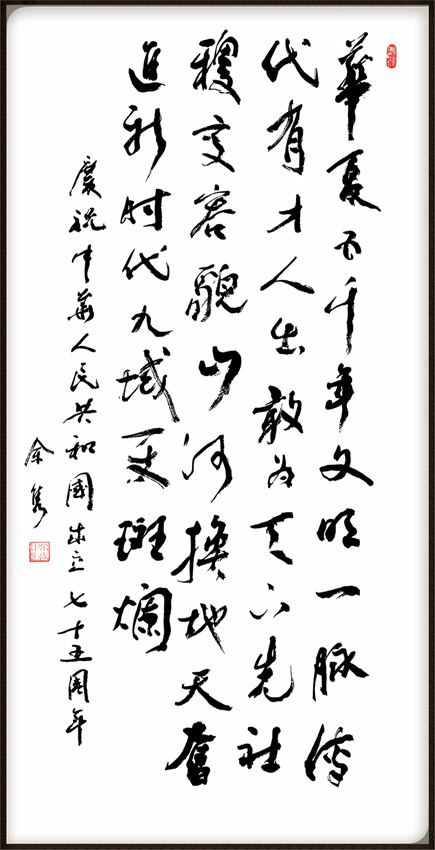 華夏五千年文明一脉傳
代有才人出敢为天下先社
稷变容貌山河换地天奮
進新时代九域更斑斕
慶祝中華人民共和國成立七十五周年
余隽